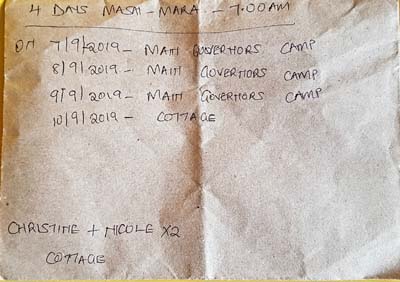 4 DAYS MASAI - MARA - 7.00AM
ON 7/9/2019 - MAIN GOVERNORS CAMP
8/9/2019 - MAIN GOVERNORS CAMP
9/9/2019 - MAIN GOVERNORS CAMP
10/9/2019 - COTTAGE
CHRISTINE + NICOLE X2
COTTAGE